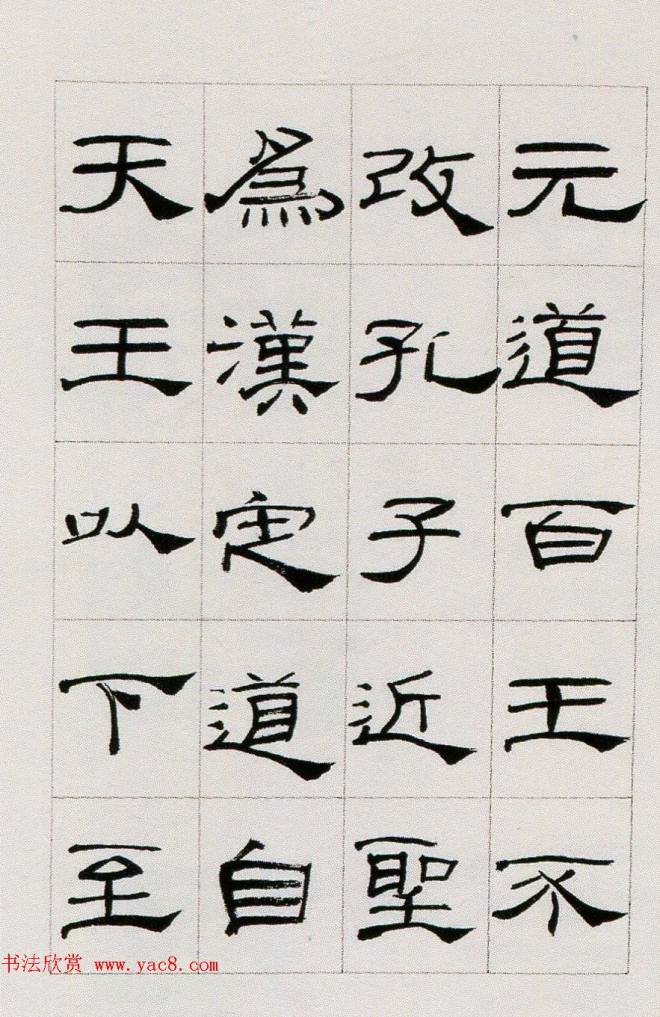 元道百王不
改孔子近聖
為漢定道自
天王以下至
书法欣赏 www.yac8.com